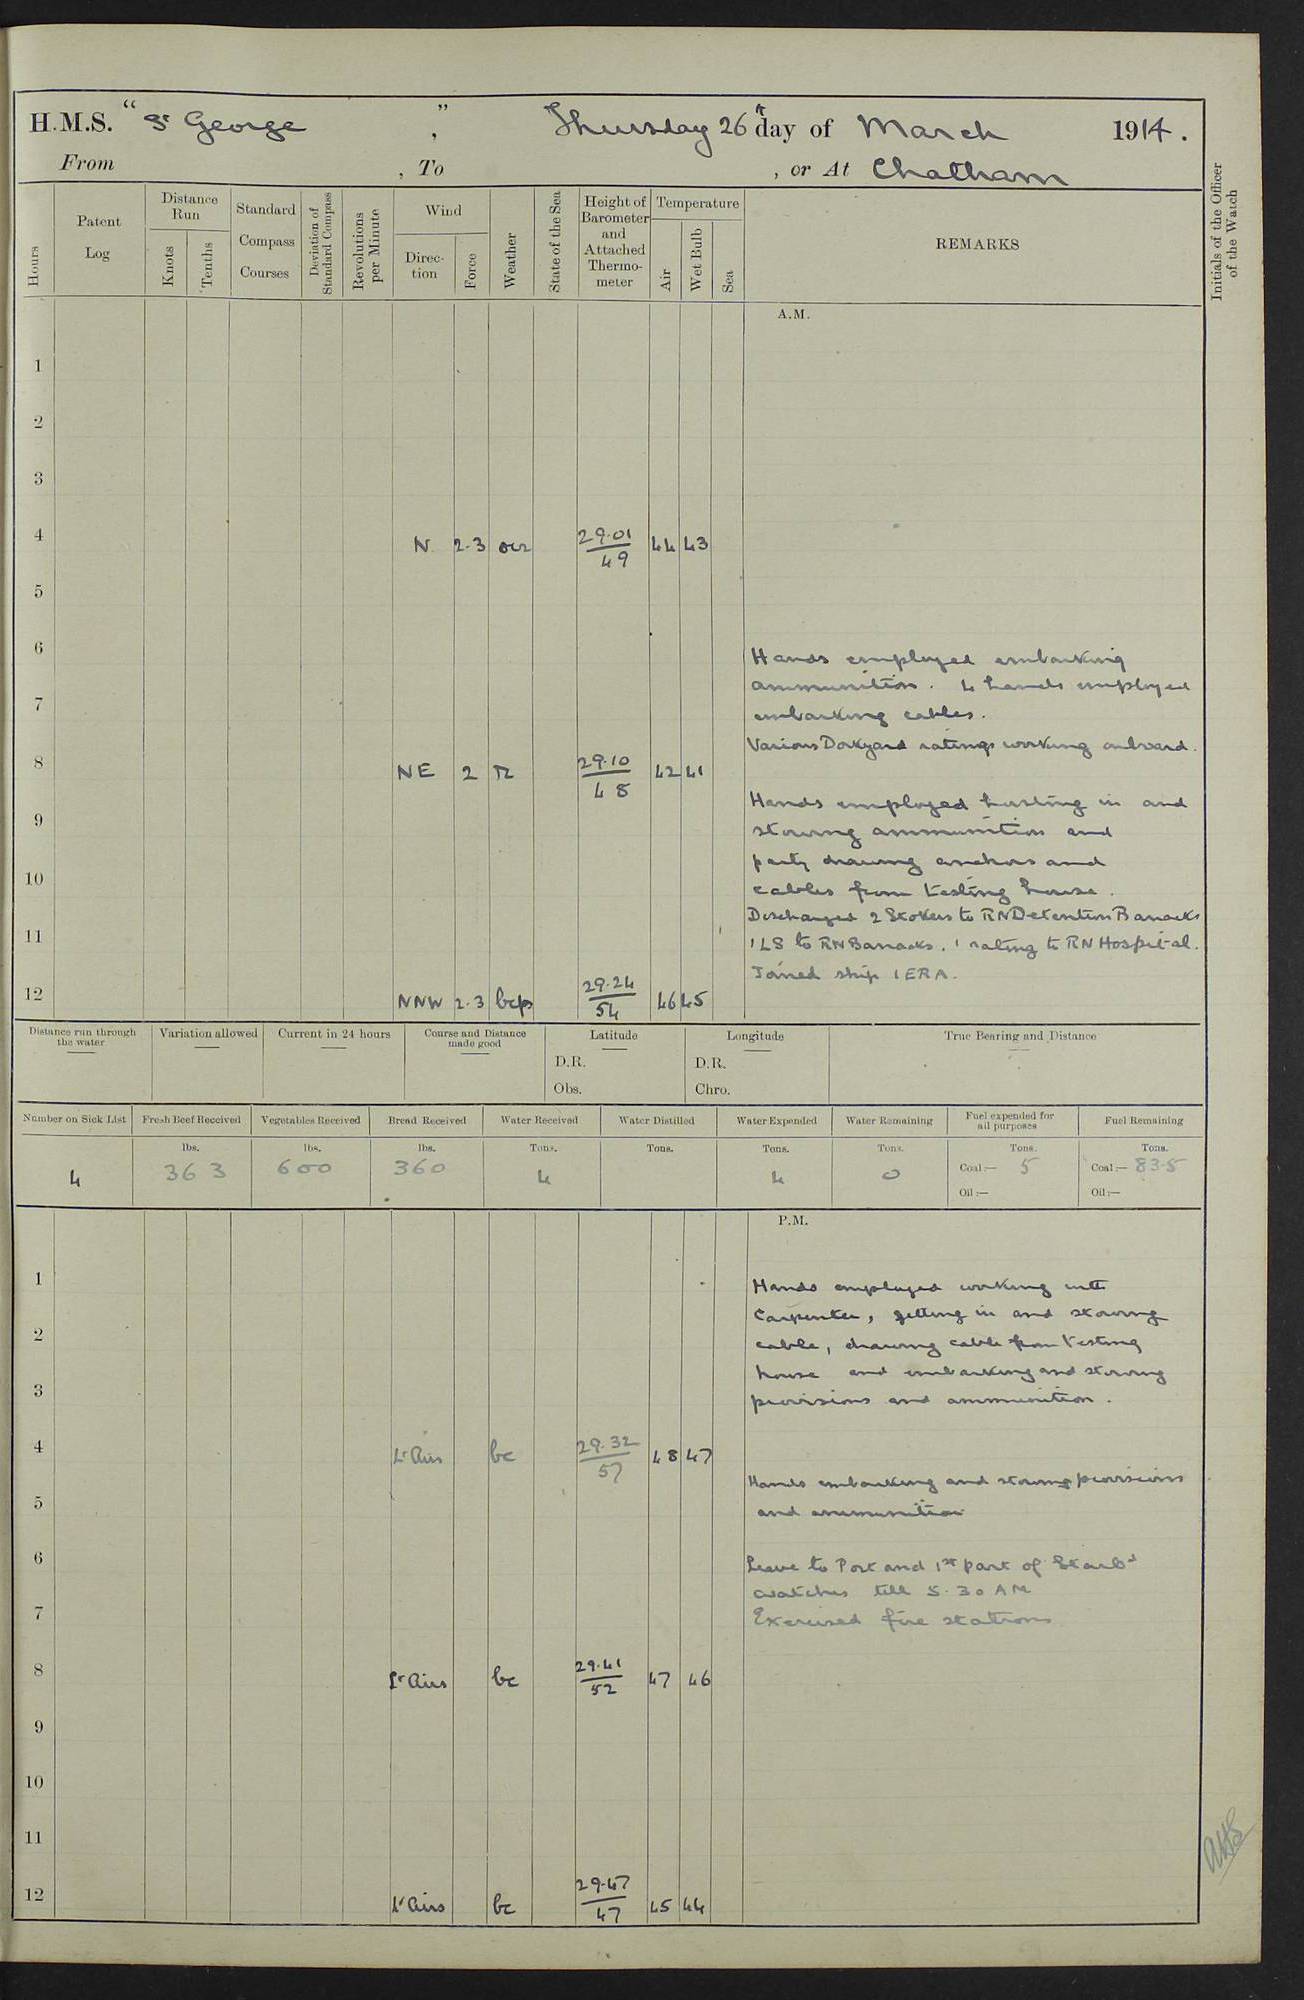 H.M.S. "St George", Thursday 26th day of March 1914.
From , To , or At Chatham
Hours
Patent Log
Distance Run
Knots
Tenths
Standard Compass Courses
Deviation of Standard Compass
Revolutions per Minute
Wind
Direction
Force
Weather
State of the Sea
Height of Barometer and Attached Thermometer
Temperature
Air
Wet Bulb
Sea
REMARKS
Initials of the Officer of the Watch
A.M.
1
2
3
4 N 2.3 29.01 49 44 43
5
6
Hands employed embarking
ammunition. 4 hands employed
7
embarking cables.
Various Dockyard ratings working onboard.
8 NE 2 r 29.10 48 42 41
Hands employed hoisting in and
9
stowing ammunition and
party drawing anchors and
10
cables from testing house.
Discharged 2 Stokers to RN Detention Barracks
11
1 LS to RN Barracks. 1 rating to RN Hospital.
Joined ship 1 ERA.
12 NNW 2.3 bcp 29.24 54 46 45
Distance run through the water
Variation allowed
Current in 24 hours
Course and Distance made good
Latitude
D.R.
Obs.
Longitude
D.R.
Chro.
True Bearing and Distance
Number on Sick List
Fresh Beef Received
Vegetables Received
Bread Received
Water Received
Water Distilled
Water Expended
Water Remaining
Fuel expended for all purposes
Fuel Remaining
lbs. lbs. lbs. Tons. Tons. Tons. Tons. Tons. Tons.
4 363 600 360 4 4 0 Coal:— 5 Coal:— 835
Oil:— Oil:—
P.M.
1
Hands employed working with
Carpenter, getting in and stowing
2
cable, drawing cable from testing
house and embarking and stowing
3
provisions and ammunition.
4 Lt Airs bc 29.32 57 48 47
Hands embarking and stowing provisions
5
and ammunition
6
Leave to Port and 1st part of Starbd
watches till 5.30 AM
7
Exercised fire stations
8 Lt Airs bc 29.41 52 47 46
9
10
11
12 Lt Airs bc 29.47 47 45 44